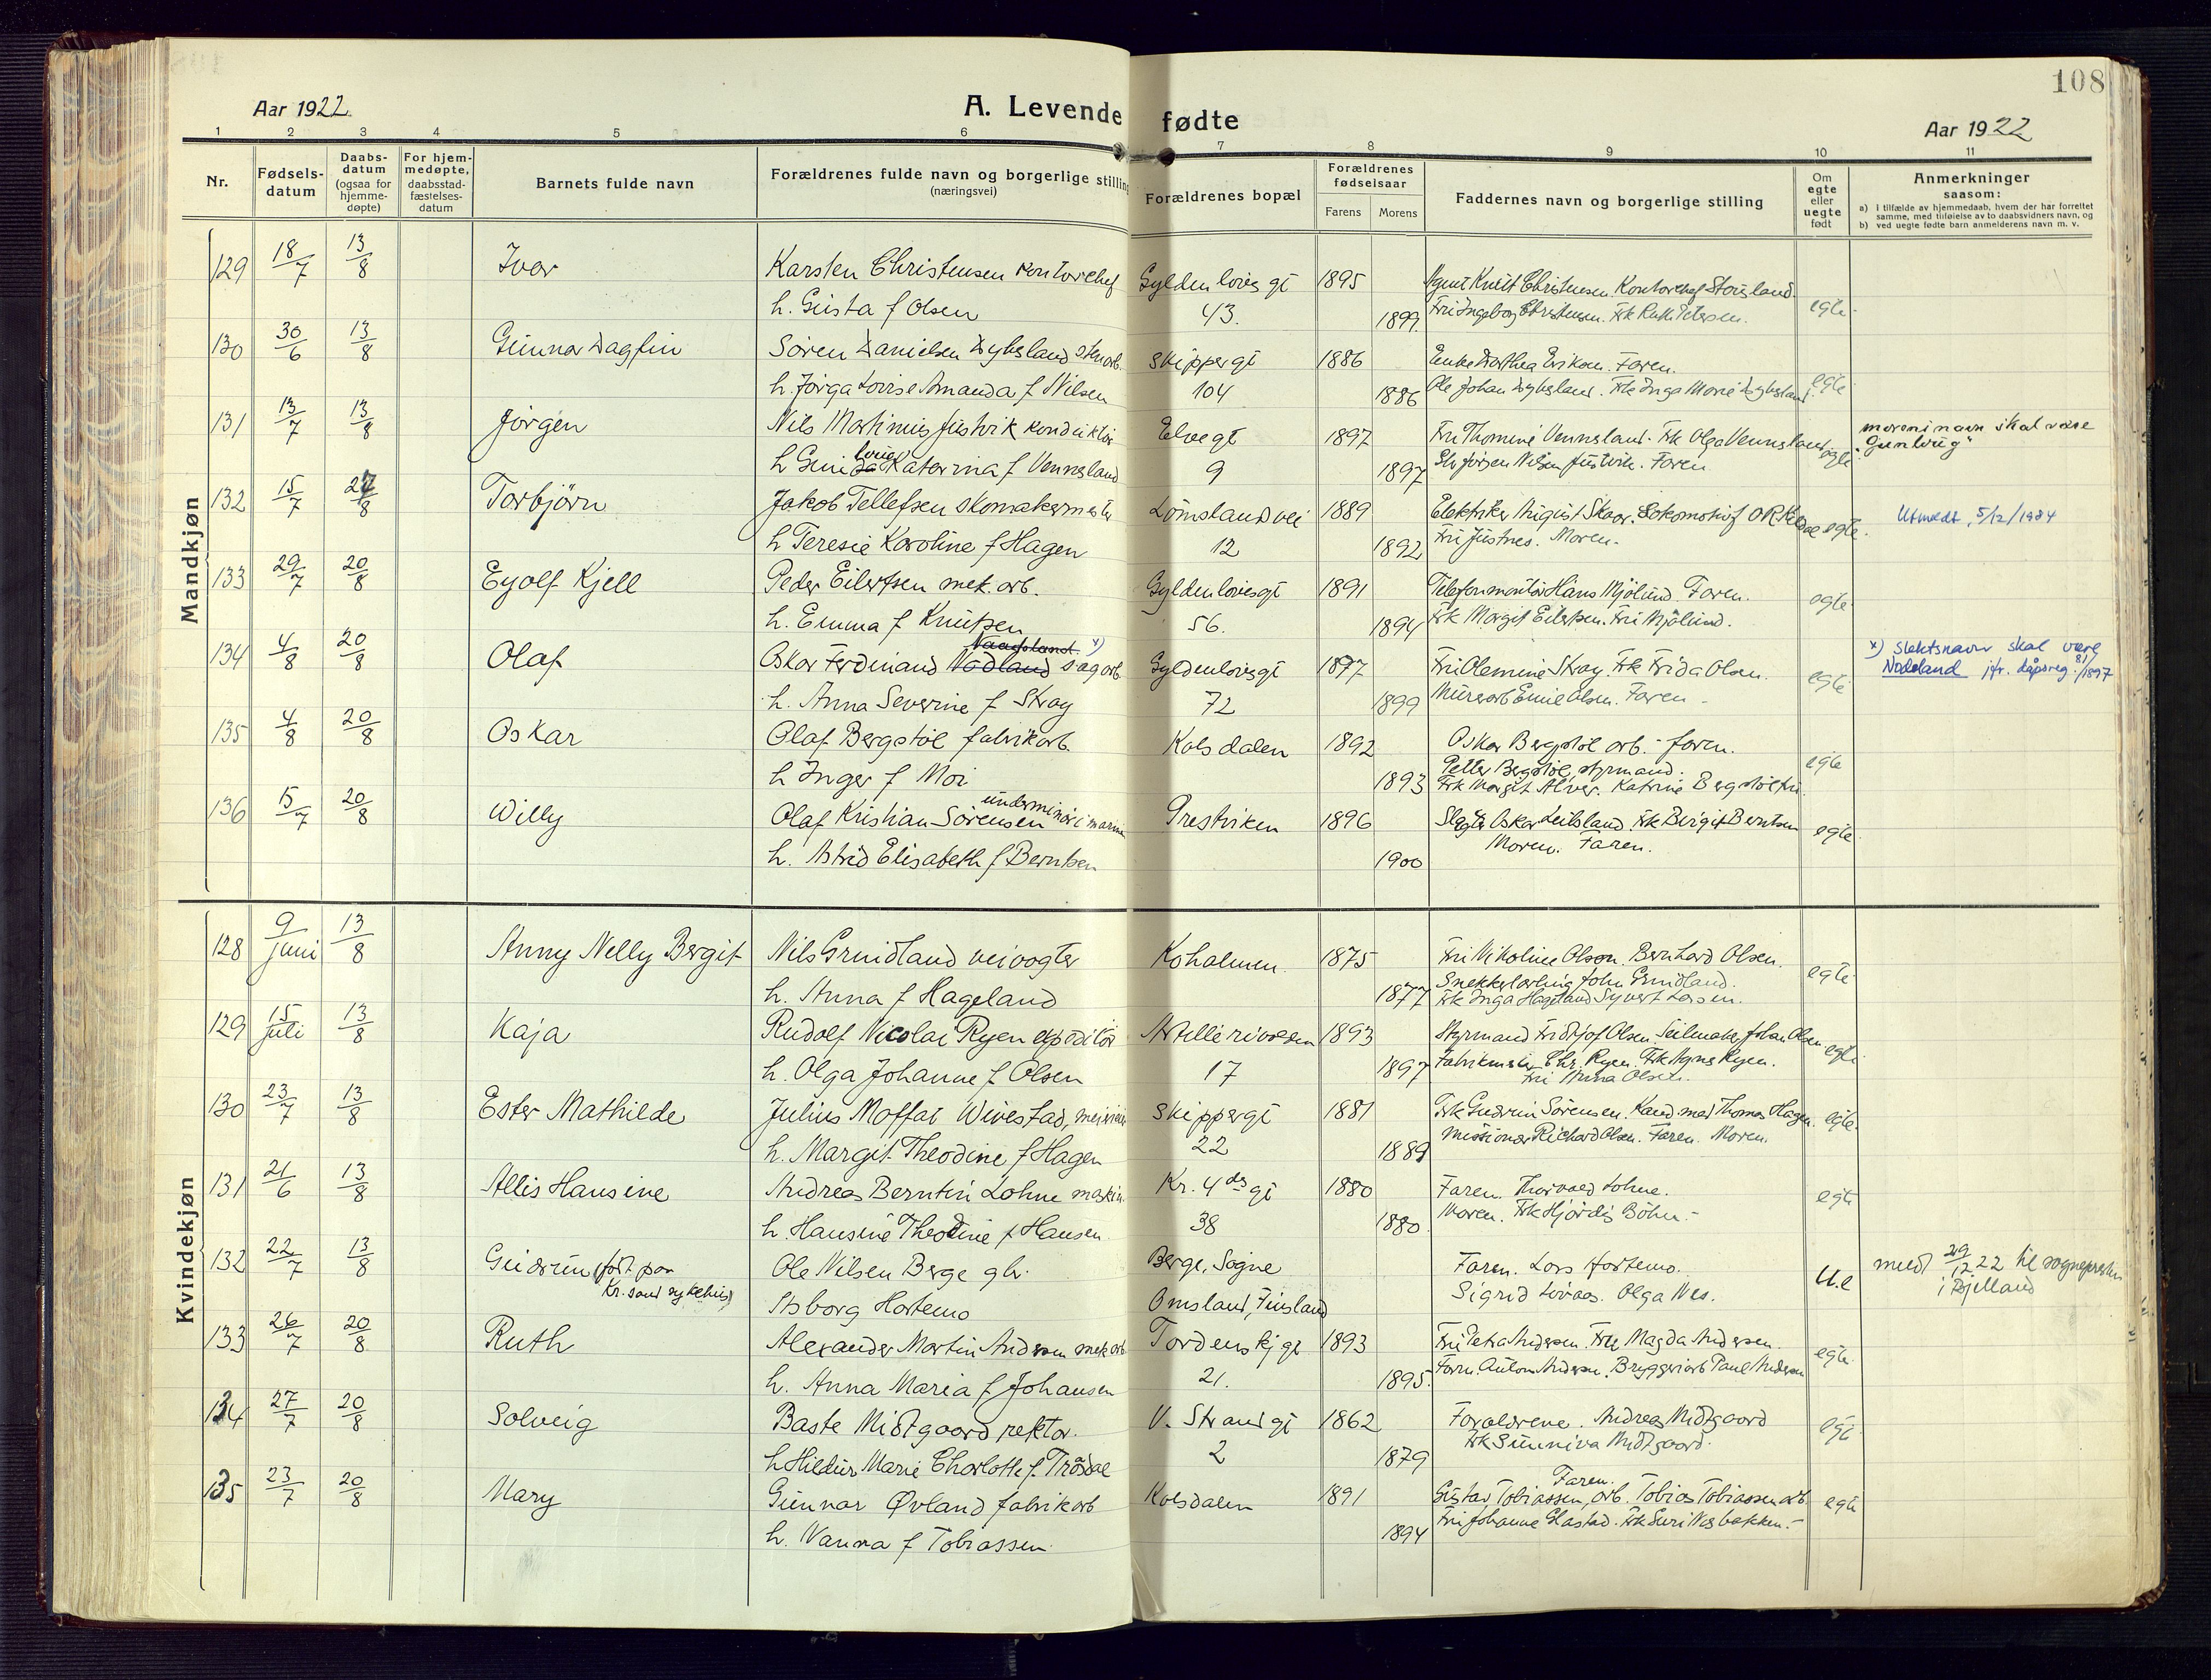 108
Aar 1922
A. Levende fødte
Aar 1922
1 2 3 4 5 6 7 8 9 10 11
Nr.
Fødsels-datum
Daabs-datum (ogsaa for hjemme-døpte)
For hjem-medøpte, daabsstad-fæstelses-datum
Barnets fulde navn
Forældrenes fulde navn og borgerlige stilling (næringsvei)
Forældrenes bopæl
Forældrenes fødselsaar
Farens
Morens
Faddernes navn og borgerlige stilling
Om egte eller uegte født
Anmerkninger
saasom:
a) I tilfælde av hjemmedaab, hvem der har forrettet samme, med tilføielse av to daabsvidners navn, og
b) ved uegte fødte barn anmelderens navn m. v.
Mandkjøn
129 18/7 13/8 Ivar Karsten Christensen kontorchef Gyldenløves gt 1895 Agent Knut Christensen. Kontorchef Stousland.
h. Gusta f Olsen 43. 1899. Fru Ingeborg Christensen. Frk Ruth Petersen. egte
130 30/6 13/8 Gunnar Dagfin Søren Danielsen Dybsland stenarb. Skippergt 1886 Enke Dorthea Eriksen. Faren.
h. Jørga Lovise Amanda f Nilsen 104 1886 Ole Johan Dybsland. Frk Inga Marie Dybsland. egte
131 13/7 13/8 Jørgen Nils Martinius Justvik konduktør Elvegt 1897 Fru Thomine Vennesland. Frk Olga Vennesland egte
h Gunda laug Katerina f Vennesland 9 1897 Jørgen Nilsen Justvik. Faren.
morens navn skal være "Gunlaug"
132 15/7 20/8 Torbjørn Jakob Tellefsen skomakermester Lømslandvei 1889 Elektriker August Skaar. Lokomotivf
h Teresie Karoline f Hagen 12 1892 Fru Justnes. Moren. egte
Utmeldt, 5/12/1934
133 29/7 20/8 Eyolf Kjell Peder Eilertsen mek. arb. Gyldenløvesgt 1891 Telefonmontør Hans Mjölund. Faren.
h. Emma f Knutsen 56. 1894 Frk Margit Eilertsen. Fru Mjölund. egte
134 4/8 20/8 Olaf Oskar Ferdinand Nodland sagarb. Gyldenløvesgt 1897 Fru Olemine Skray. Frk Frida Olsen.
h. Anna Severine f Skray 72 1899 Murerarb Emil Olsen. Faren egte
x) Slektsnavn skal være Nodeland jfr. dåpsreg. 81/1897
135 4/8 20/8 Oskar Olaf Bergstøl fabrikarb. Kolsdalen 1892 Oskar Bergstøl arb. - faren.
h Inger f Moi 1893 Petter Bergstøl, styrmand. egte
Frk Margit Alver. Katrine Bergstøl fru.
136 15/7 20/8 Willy Olaf Kristian Sörensen underminör i marinen Prestviken 1896 Slagter Oskar Leibsland. Frk Bergit Berntsen
h. Astrid Elisabeth f Berntsen 1900 Moren. Faren. egte
Kvindekjøn
128 9 juni 13/8 Anny Nelly Bergit Nils Grundland veivogter Koholmen 1875 Fru Nikoline Olsen. Bernhard Olsen.
h. Anna f Hageland 1877 Snekkerlærling John Grundland. egte
Frk Inga Hageland Syvert Larsen.
129 15 juli 13/8 Kaja Rudolf Nicolai Ryen expeditör Artillerivolden 1893 Styrmand Fridtjof Olsen. Seilmaker Johan Olsen.
h. Olga Johanne f Olsen 17 1897 Fabrikmester Chr. Ryen. Frk Agnes Ryen. egte
Fru Anna Olsen.
130 23/7 13/8 Ester Mathilde Julius Moffat Wivestad, Skippergt 1881 Frk Gudrun Sörensen. Kand. med Thomas Hagen.
h. Margit Theodine f Hagen 22 1889 Missionær Richard Olsen. Faren. Moren. egte
131 21/6 13/8 Allis Hansine Andreas Berntin Lohne maskin. Kr. 4des gt 1880 Faren. Thorvald Lohne.
h. Hansine Theodine f Hansen. 38 1880 Moren. Frk Hjördis Böhn. egte
132 22/7 13/8 Gudrun (født paa Kr.sand sykehus) Ole Nilsen Berge gbr. Berge, Søgne Faren. Lars Hortemo.
Asborg Hortemo Omsland, Finsland Sigrid Livaas. Olga Nes. U.e
meldt 29/12 22 til sognepresten i Bjelland
133 26/7 20/8 Ruth Alexander Martin Andersen mek arb Tordenskjgt 1893 Fru Petra Andersen. Fru Magda Andersen.
h. Anna Maria f Johansen 21. 1895. Faren. Anton Andersen. Bryggeriarb Paul Andersen egte
134 27/7 20/8 Solveig Baste Midtgaard rektor. V. Strandgt 1862 Forældrene. Andreas Midtgaard
h Hildur Marie Charlotte f. Trädal 2 1879 Frk Sunniva Midtgaard. egte
135 23/7 20/8 Mary Gunnar Øvland fabrikarb Kolsdalen 1891 Faren.
Gustav Tobiassen, arb. Tobias Tobiassen arb.
h. Vanna f Tobiassen 1894 Fru Johanne Glastad. Frk Suri Nesbakken. egte